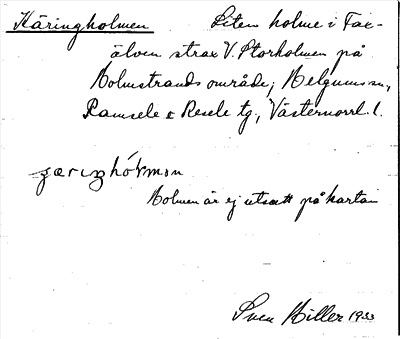 Käringholmen Liten holme i Fax-
älven strax V. Storholmen på
Holmstrands område, Helgums sn,
Ramsele o Resele tg., Västernorrl. l.
Holmen är ej utsatt på kartan
Sven Hiller 1933